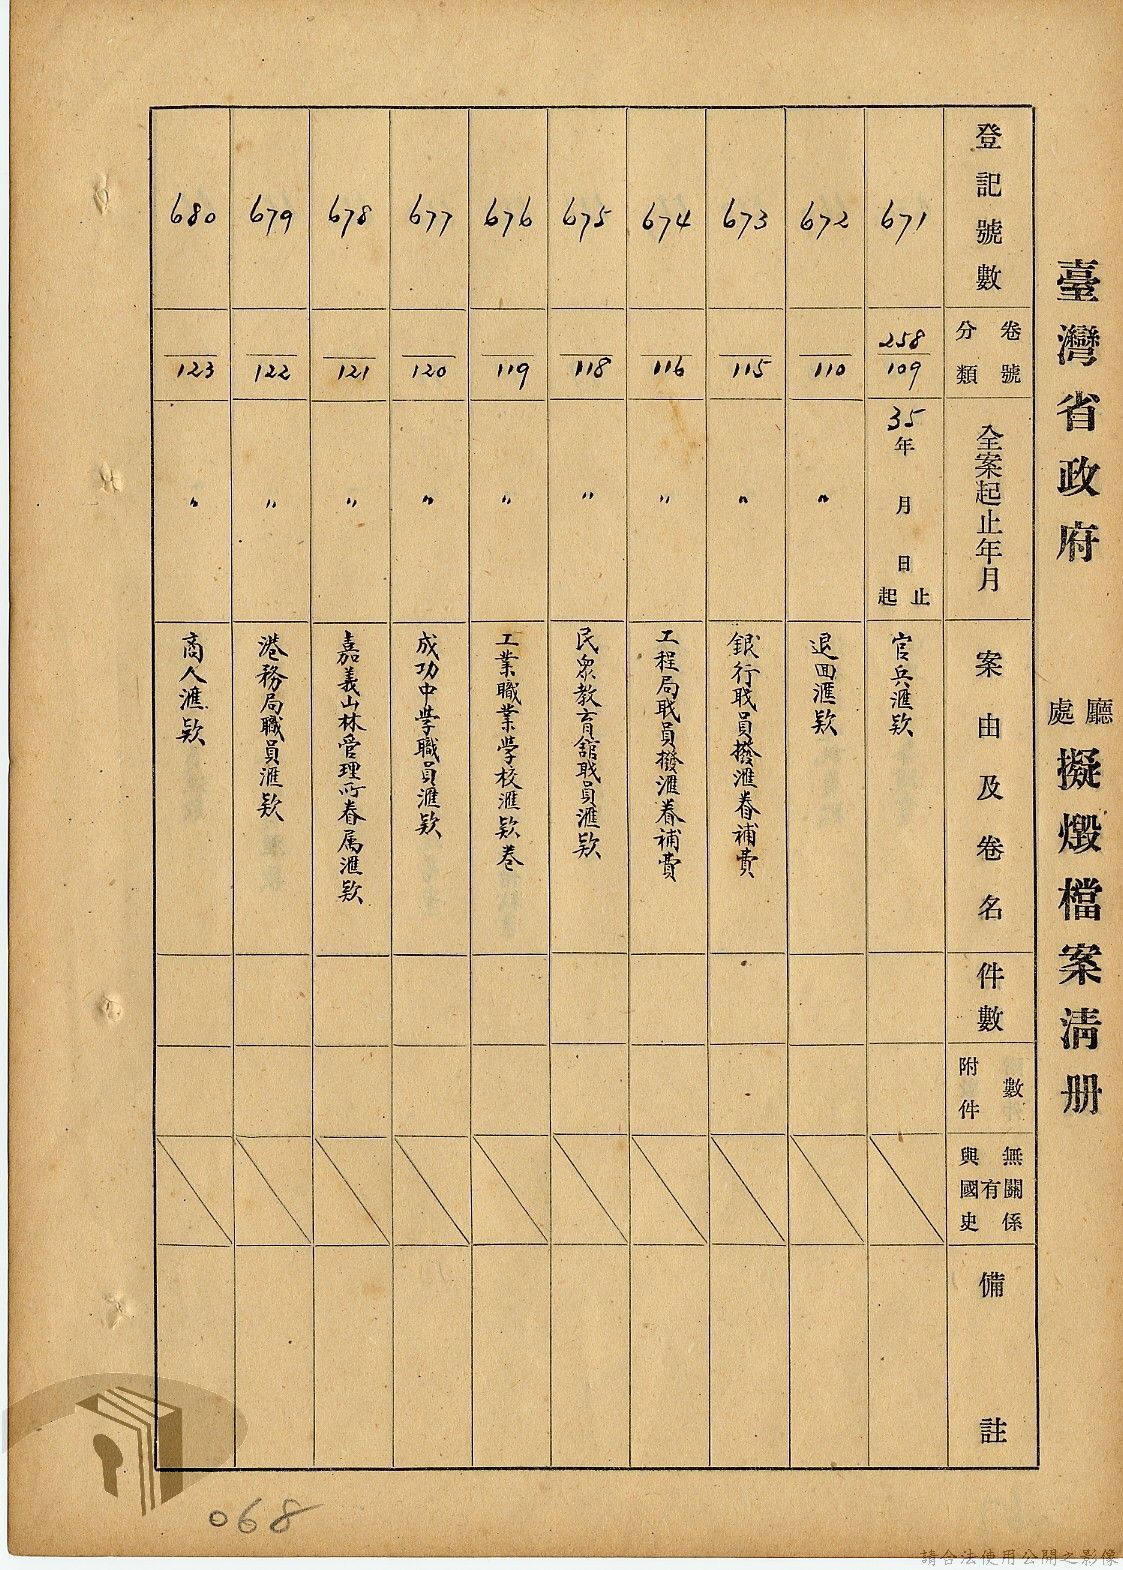 臺灣省政府 廳處 擬燬檔案清册
登記號數
卷號
分類
全案起止年月
案由及卷名
件數
附件
數
與國史
有
無關係
備註
671
258
109
35年 月 日 止起
官兵滙欵
672
110
〃
退回滙欵
673
115
〃
銀行职員撥滙眷補費
674
116
〃
工程局职員撥滙眷補費
675
118
〃
民衆教育舘职員滙欵
676
119
〃
工業職業学校滙欵卷
677
120
〃
成功中学職員滙欵
678
121
〃
嘉義山林管理所眷属滙欵
679
122
〃
港務局職員滙欵
680
123
〃
商人滙欵
068
請合法使用公開之影像